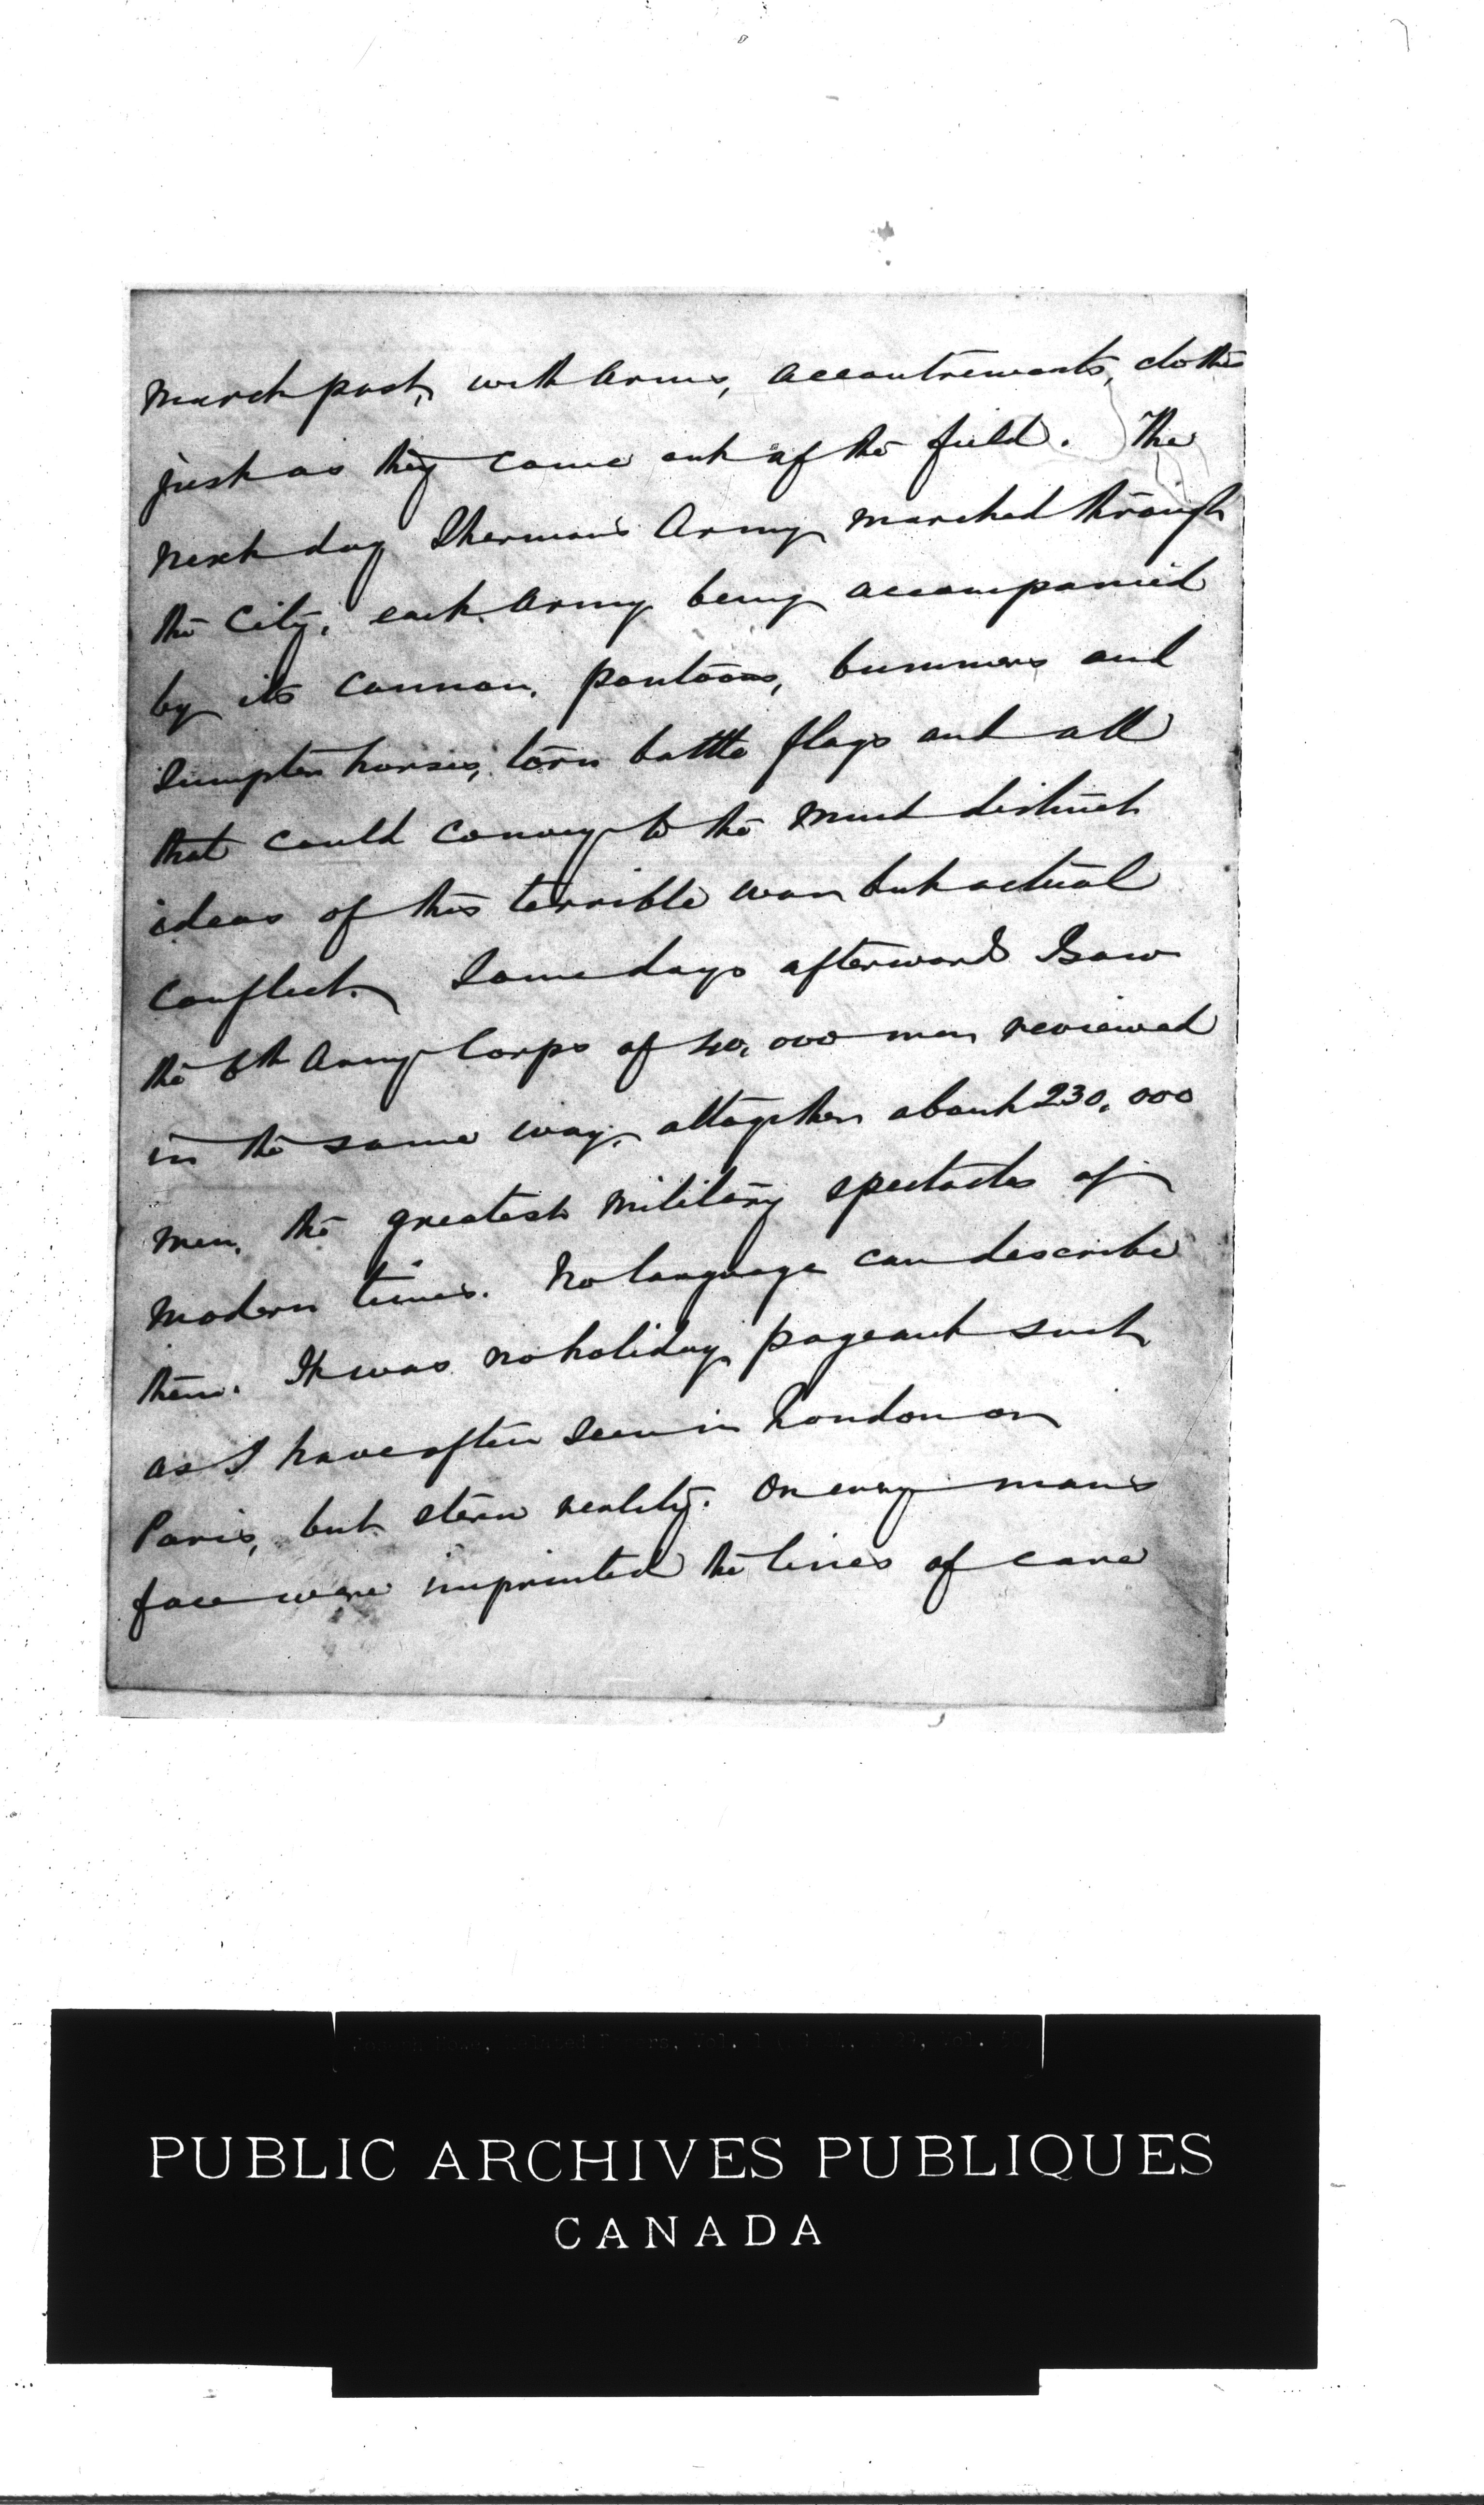 march past, with arms, accoutrements, clothes
just as they came out of the field. The
next day Sherman's Army marched through
the City, each Army being accompanied
by its cannon, pontoons, bummers and
sumpter horses, torn battle flags and all
that could convey to the mind distinct
ideas of this terrible war but actual
conflict. Some days afterward I saw
the 6th Army Corps of 40,000 men reviewed
in the same way, altogether about 230,000
men, the greatest military spectacles of
modern times. No language can describe
them. It was no holiday pageant such
as I have often seen in London or
Paris, but stern reality. On every man's
face were imprinted the lines of care
PUBLIC ARCHIVES PUBLIQUES
CANADA